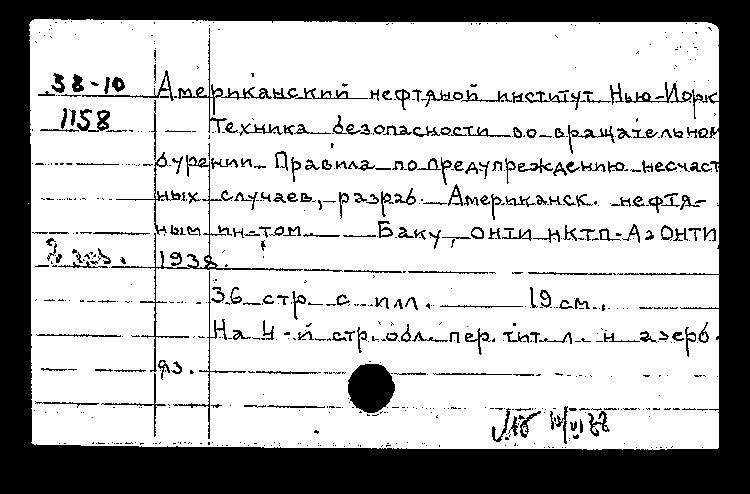 38-10 Американский нефтяной институт Нью-Йорк
1158 Техника безопасности во вращательном
бурении Правила по предупреждению несчаст
ных случаев, разраб. Американск. нефтя-
ным ин-том. Баку, ОНТИ НКТП-АзОНТИ,
2 экз. 1938.
36 стр. с илл. 19 см.
На 4-й стр. обл. пер. тит. л. н азерб.
яз.